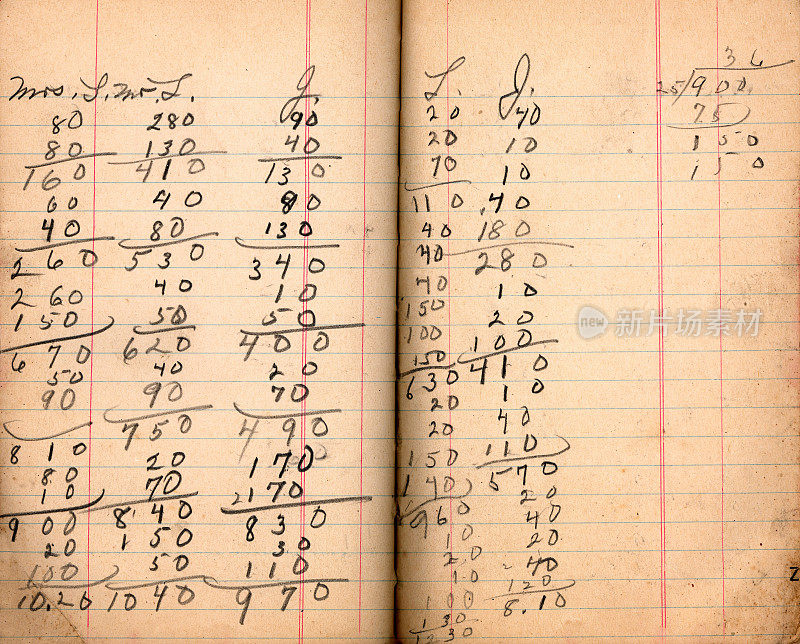 Mrs. L. Mr. L. J.
80 280 90
80 130 40
160 410 130
60 40 80
40 80 130
260 530 340
260 40 10
150 50 50
670 620 400
50 40 20
90 90 70
810 750 490
80 20 170
10 70 2170
900 840 830
20 150 30
100 50 110
10.20 1040 970
L. J.
20 40
20 10
70 10
110 40
40 180
40 280
40 10
150 20
100 100
150 410
630 10
20 40
20 110
150 570
140 20
960 40
10 20
20 40
10 120
100 8.10
130
1230
36
25/900
75
150
150
new 新片场素材
Z